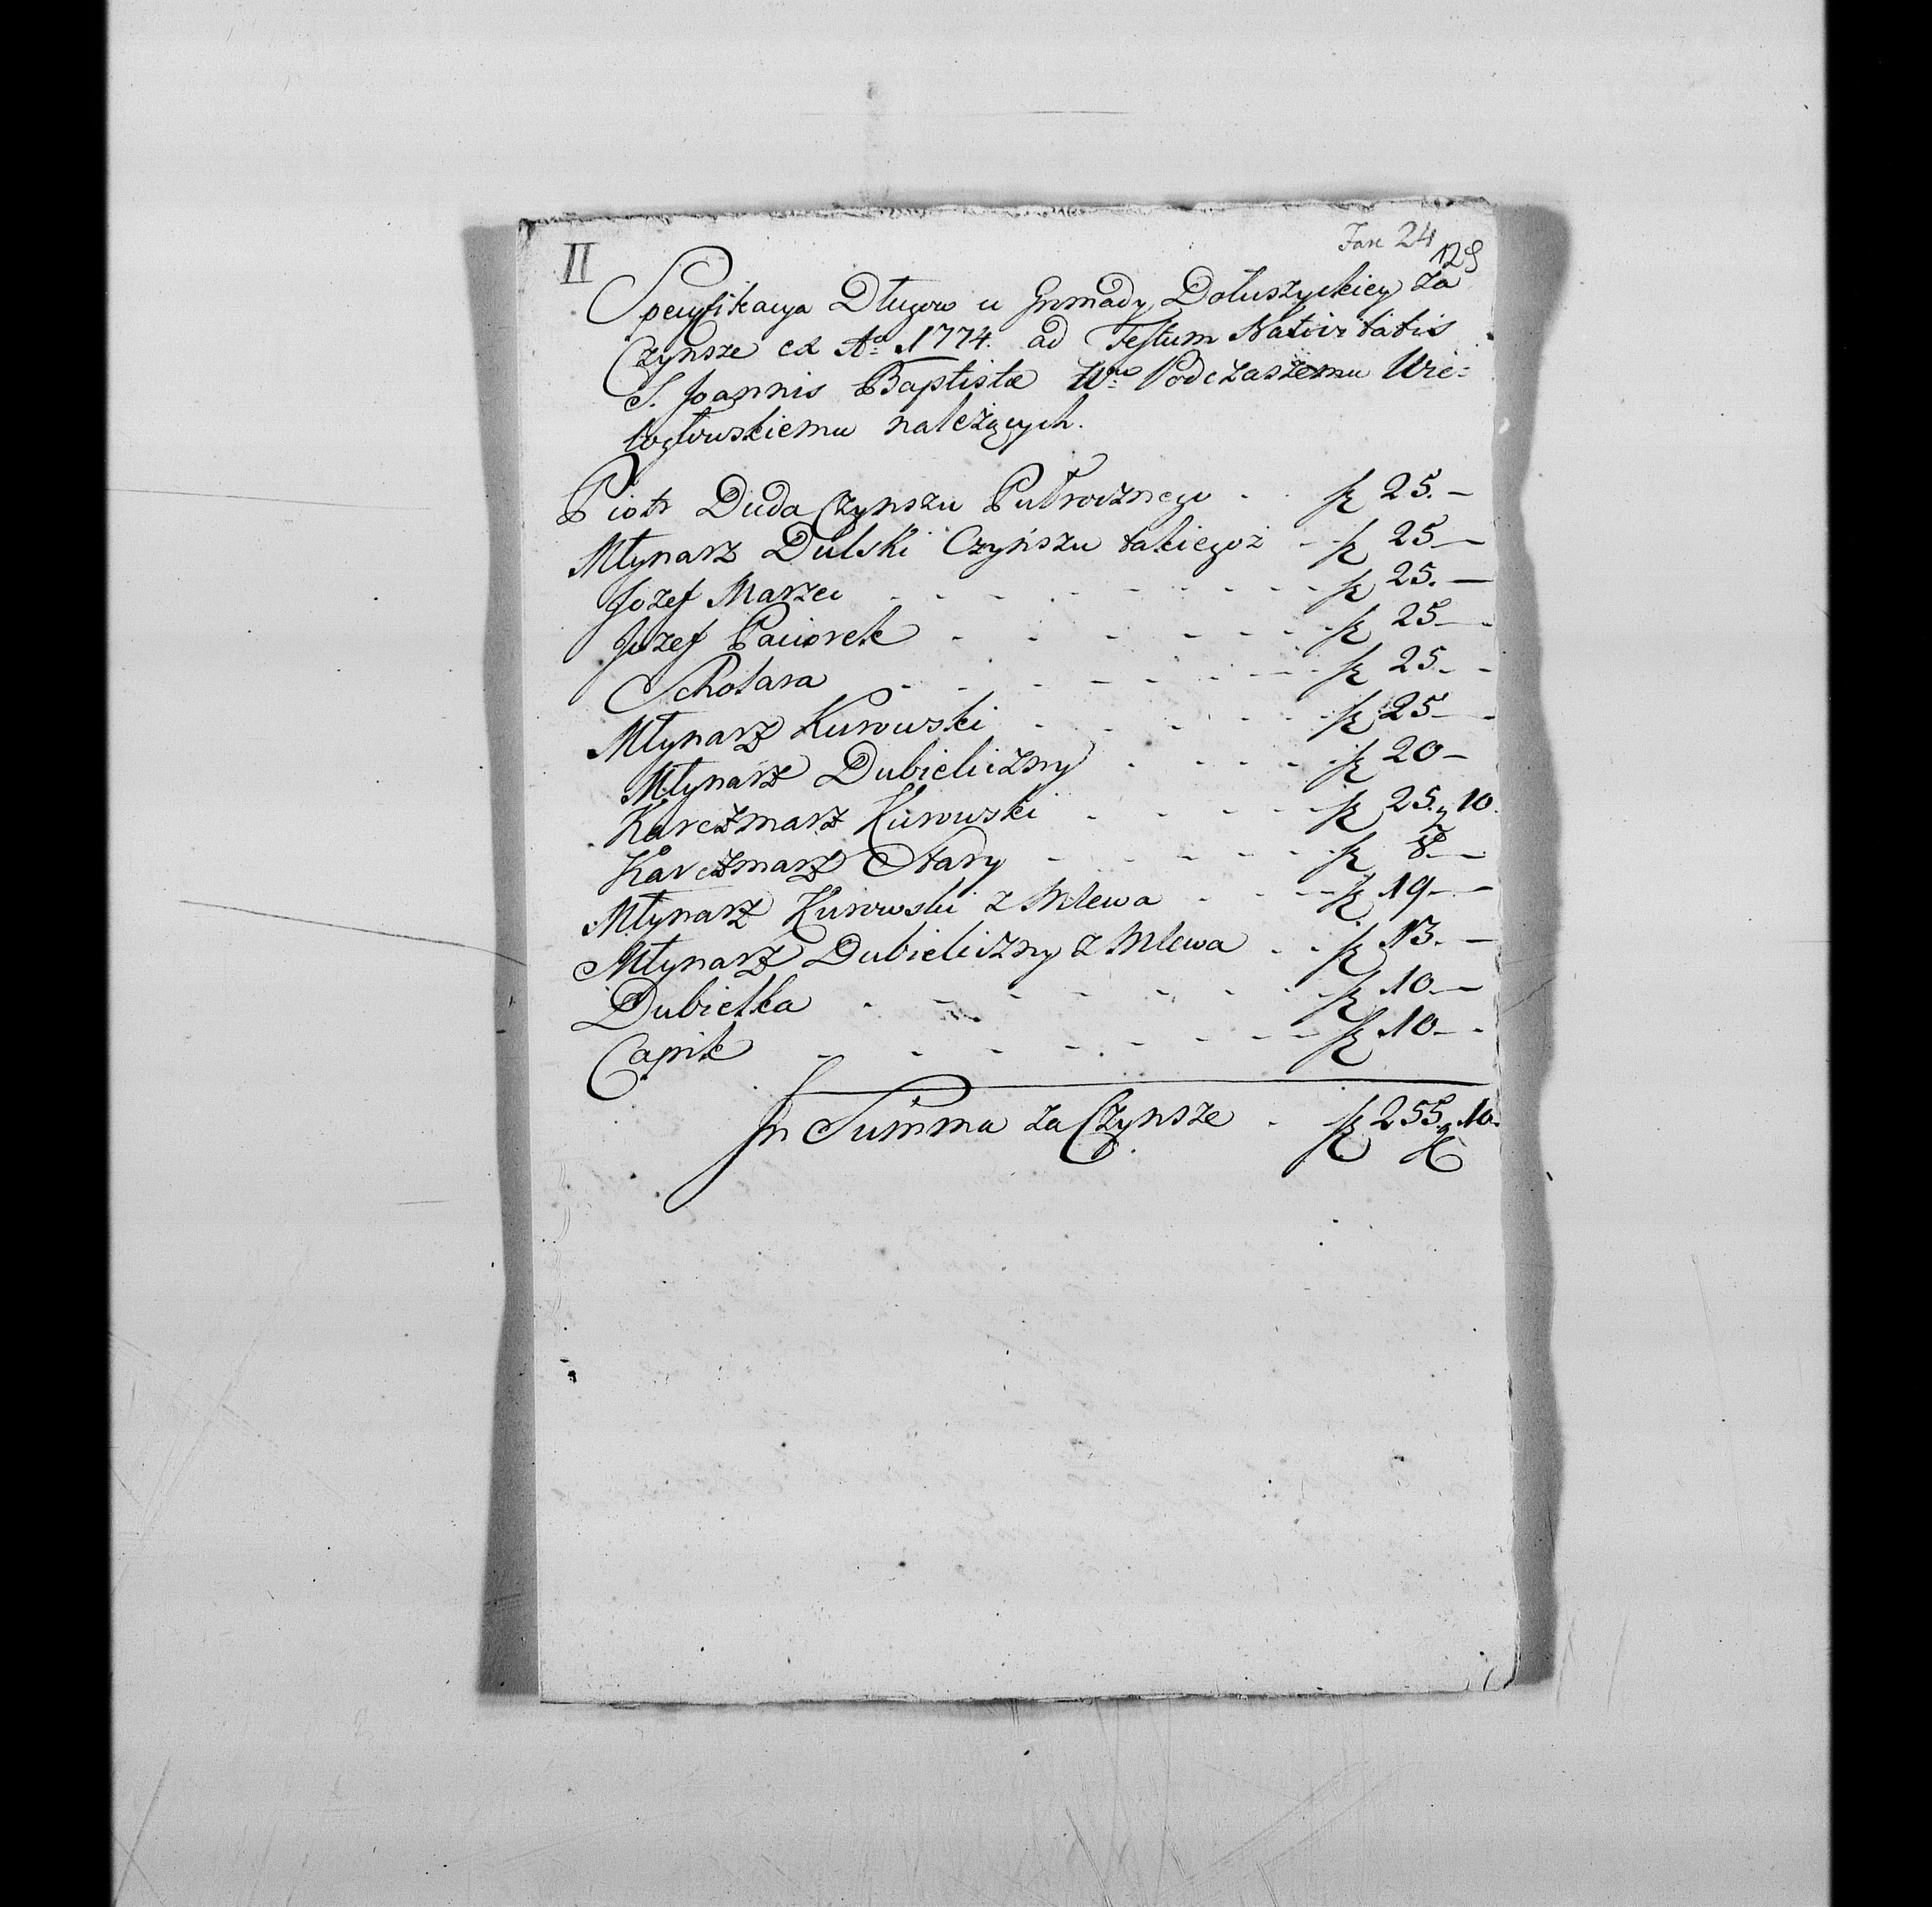 II
Fasc 24
129
Specyfikacya Długow u Gromady Dołuszyckiey za
Czynsze ex Aº 1774. ad Festum Nativitatis
S. Joannis Baptistæ Wmo Podczaszemu Wie=
logłowskiemu należących.
Piotr Duda Czynszu Pułrocznego - - zł 25. -
Młynarz Dulski Czyńszu takiegoż - - zł 25 -
Jozef Marzec - - - - - - - - zł 25. -
Jozef Paciorek - - - - - - - zł 25 -
Skotara - - - - - - - - zł 25 - -
Młynarz Kurowski - - - - - zł 25 -
Młynarz Dubieliczny - - - - zł 20 -
Karczmarz Kurowski - - - - - zł 25. g 10.
Karczmarz Stary - - - - - zł 8. -
Młynarz Kurowski z Mlewa - - - zł 19 - -
Młynarz Dubieliczny z Mlewa - - zł 13. -
Dubielka - - - - - - - zł 10 -
Capik - - - - - - - - zł 10 - -
In Summa za Czynsze - zł 255. g 10.